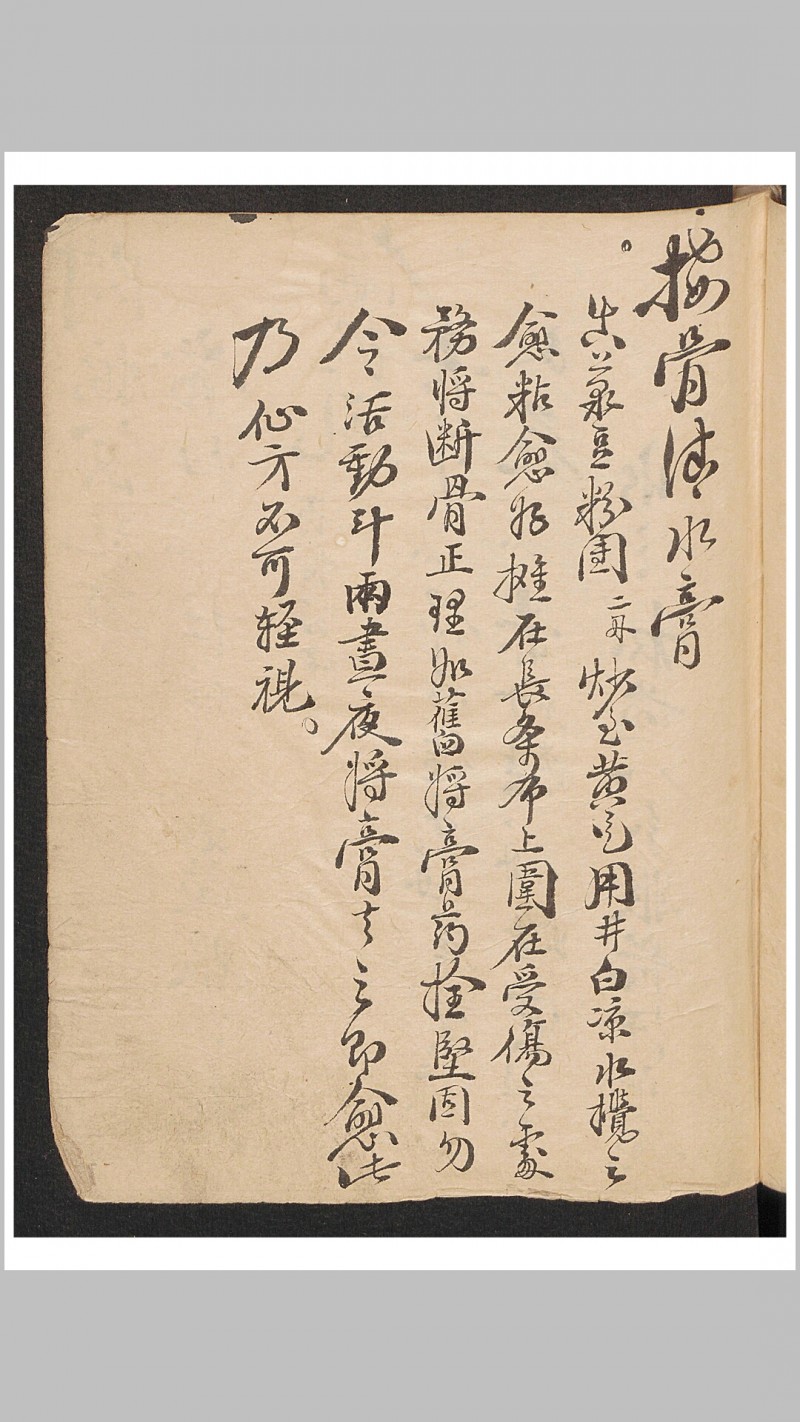 接骨清水膏
真菉豆粉團二两炒至黄色用井白凉水攪之
愈粘愈好攤在長条布上圍在受傷之處
務将断骨正理如舊将膏药拴堅固勿
令活動斗兩晝夜将膏去之即愈此
乃仙方不可輕視。